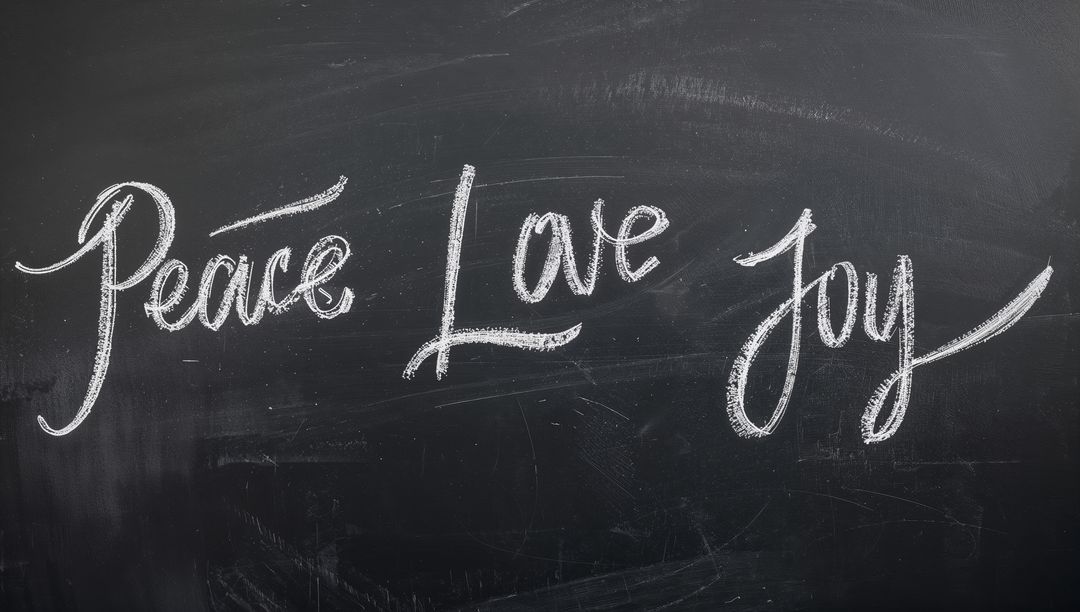 Peace Love Joy